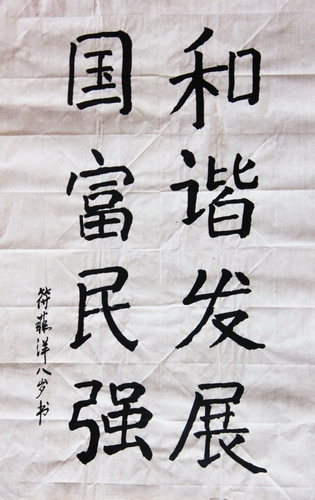 和谐发展
国富民强
符菲洋八岁书